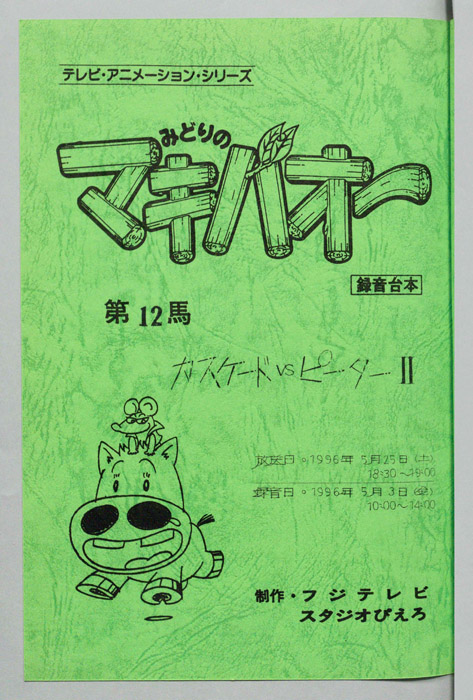 テレビ・アニメーション・シリーズ
みどりの
マキバオー
録音台本
第12馬
カスケードVSピーターII
放送日。1996年5月25日(土)
18:30〜19:00
録音日。1996年5月3日(金)
10:00〜14:00
制作・フジテレビ
スタジオぴえろ